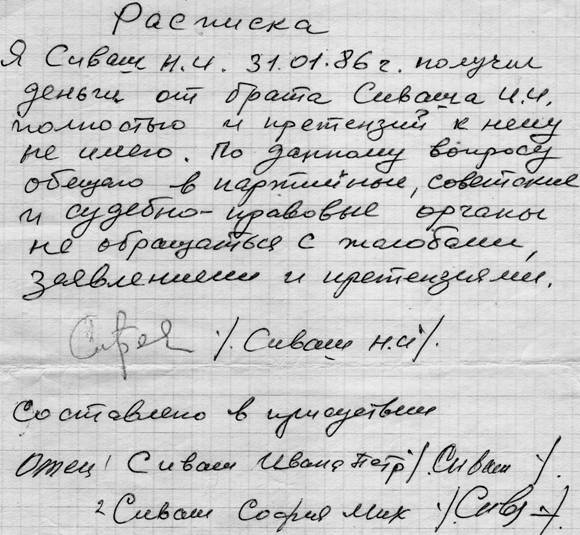 Расписка
Я Сиваш Н.И. 31.01.86г. получил
деньги от брата Сиваша И.И.
полностью и претензий к нему
не имею. По данному вопросу
обещаю в партийные, советские
и судебно-правовые органы
не обращаться с жалобами,
заявлениями и претензиями.
/. Сиваш Н.И/.
Составлено в присутствии
Отец! Сиваш Ивана Петр /. Сиваш /.
2 Сиваш София Мих /